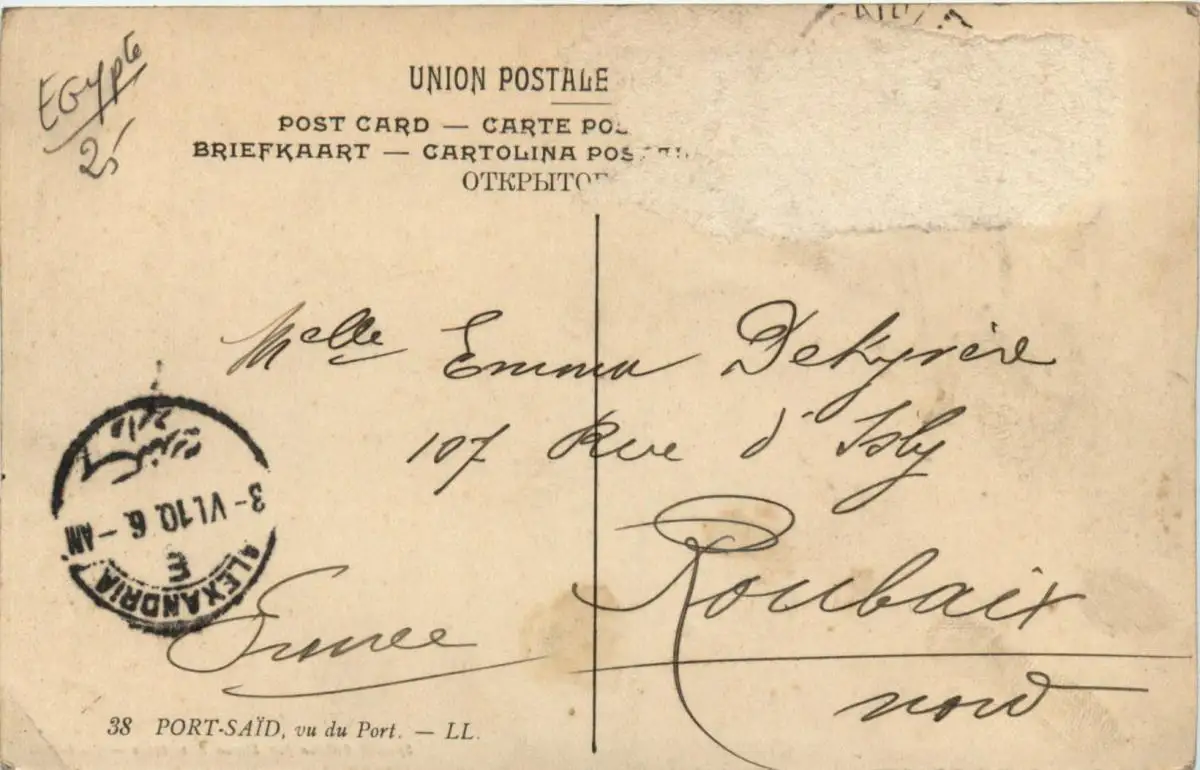 Egypte
25
UNION POSTALE
POST CARD — CARTE POS
BRIEFKAART — CARTOLINA POSTAL
ОТКРЫТОЕ
Melle Emma Dekyvère
107 Rue d'Isly
Roubaix
nord
France
3-VI.10.6.-AM
E
ALEXANDRIA
38 PORT-SAÏD, vu du Port. — LL.